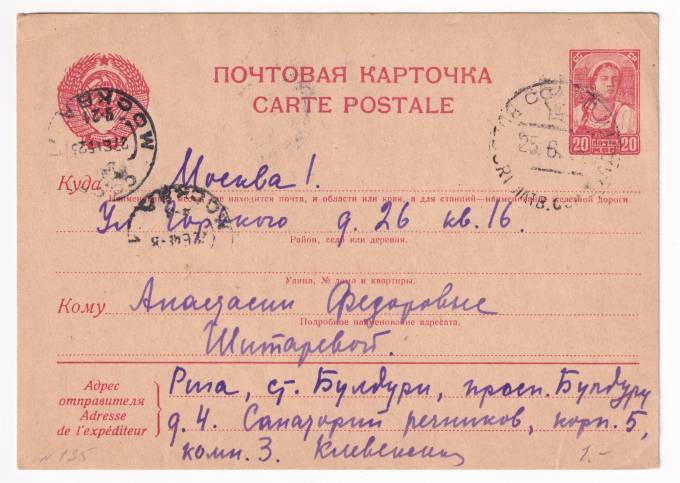 ПОЧТОВАЯ КАРТОЧКА
CARTE POSTALE
20 ПОЧТА 20
МОСКВА
Куда Москва 1.
Наименование места, где находится почта, и области или края, а для станций—наименование железной дороги.
Ул Горького д. 26 кв. 16.
Район, село или деревня.
Улица, № дома и квартиры.
Кому Анастасии Федоровне
Подробное наименование адресата.
Шитаревой.
Адрес отправителя
Adresse de l'expéditeur
Рига, ст. Булдури, просп. Булдуру
д. 4. Санаторий речников, корп. 5,
комн. 3. Клевенский
N 195
1.-